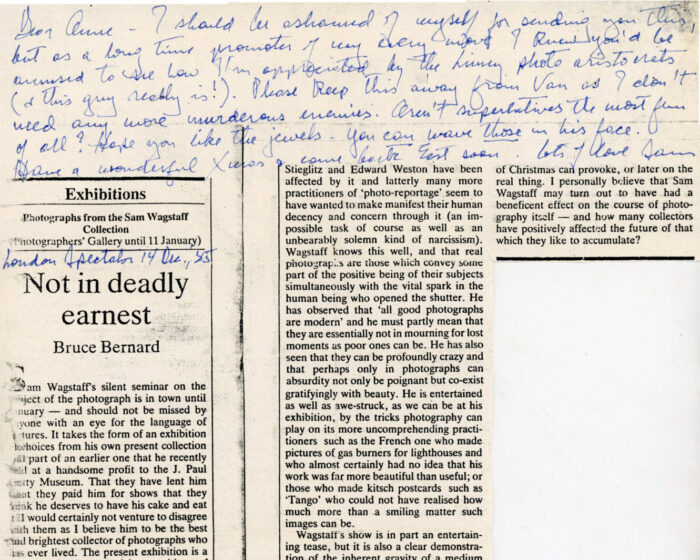 Dear Anne - I should be ashamed of myself for sending you this,
but as a long time promoter of my every move I knew you'd be
amused to see how I'm appreciated by the Limey photo aristocrats
(& this guy really is!). Please keep this away from Van as I don't
need any more murderous enemies. Aren't superlatives the most fun
of all? Hope you like the jewels - you can wave those in his face.
Have a wonderful Xmas & come back East soon. Lots of love Sam
Exhibitions
Photographs from the Sam Wagstaff
Collection
Photographers' Gallery until 11 January)
London Spectator 14 Dec., '85
Not in deadly
earnest
Bruce Bernard
Sam Wagstaff's silent seminar on the
subject of the photograph is in town until
January — and should not be missed by
anyone with an eye for the language of
pictures. It takes the form of an exhibition
choices from his own present collection
part of an earlier one that he recently
sold at a handsome profit to the J. Paul
Getty Museum. That they have lent him
what they paid him for shows that they
think he deserves to have his cake and eat
I would certainly not venture to disagree
with them as I believe him to be the best
and brightest collector of photographs who
has ever lived. The present exhibition is a
Stieglitz and Edward Weston have been
affected by it and latterly many more
practitioners of 'photo-reportage' seem to
have wanted to make manifest their human
decency and concern through it (an im-
possible task of course as well as an
unbearably solemn kind of narcissism).
Wagstaff knows this well, and that real
photographs are those which convey some
part of the positive being of their subjects
simultaneously with the vital spark in the
human being who opened the shutter. He
has observed that 'all good photographs
are modern' and he must partly mean that
they are essentially not in mourning for lost
moments as poor ones can be. He has also
seen that they can be profoundly crazy and
that perhaps only in photographs can
absurdity not only be poignant but co-exist
gratifyingly with beauty. He is entertained
as well as awe-struck, as we can be at his
exhibition, by the tricks photography can
play on its more uncomprehending practi-
tioners such as the French one who made
pictures of gas burners for lighthouses and
who almost certainly had no idea that his
work was far more beautiful than useful; or
those who made kitsch postcards such as
'Tango' who could not have realised how
much more than a smiling matter such
images can be.
Wagstaff's show is in part an entertain-
ing tease, but it is also a clear demonstra-
tion of the inherent gravity of a medium
of Christmas can provoke, or later on the
real thing. I personally believe that Sam
Wagstaff may turn out to have had a
beneficent effect on the course of photo-
graphy itself — and how many collectors
have positively affected the future of that
which they like to accumulate?